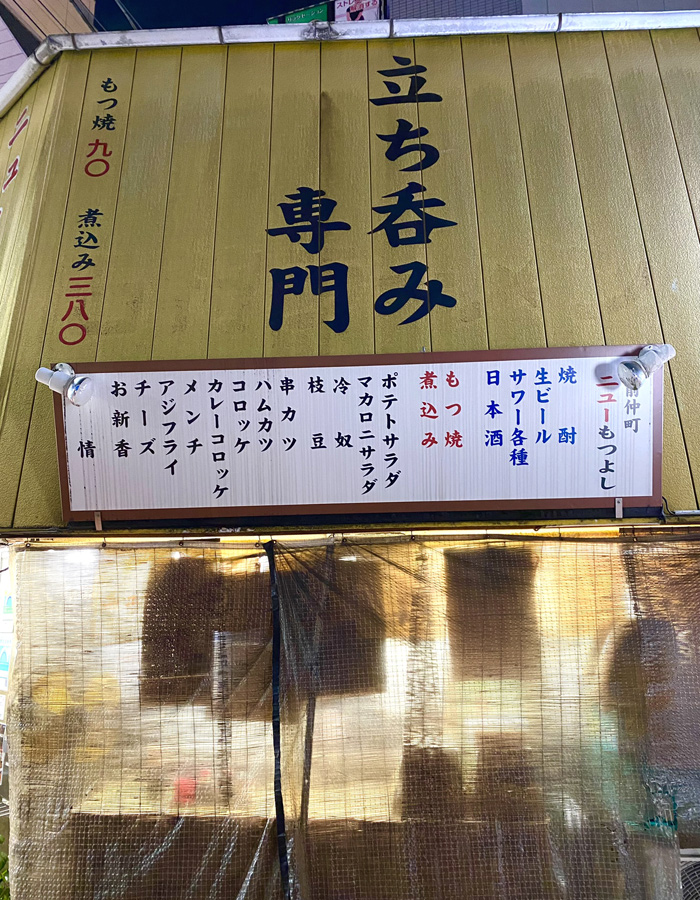 立ち呑み
専門
もつ焼 九〇
煮込み 三八〇
前仲町
ニューもつよし
焼酎
生ビール
サワー各種
日本酒
もつ焼
煮込み
ポテトサラダ
マカロニサラダ
冷奴
枝豆
串カツ
ハムカツ
コロッケ
カレーコロッケ
メンチ
アジフライ
チーズ
お新香
情